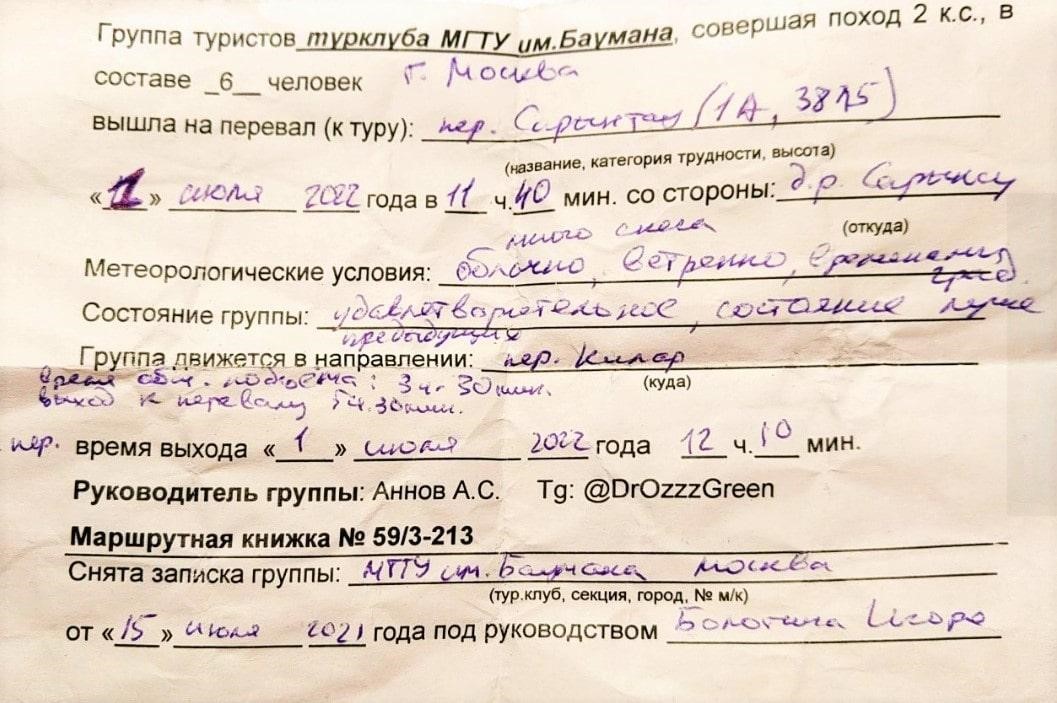 Группа туристов турклуба МГТУ им.Баумана, совершая поход 2 к.с., в
составе _6__ человек г. Москва
вышла на перевал (к туру): пер. Сарынтау (1А, 3875)
(название, категория трудности, высота)
«1» июля 2022 года в 11 ч.40 мин. со стороны: д.р. Сарынсу
(откуда)
много снега
Метеорологические условия: облачно, ветренно, временами
град.
Состояние группы: удовлетворительное, состояние лучше
предыдущих
Группа движется в направлении: пер. Килар
(куда)
время общ. подъема: 3 ч. 30 мин.
выход к перевалу 5 ч. 30 мин.
пер. время выхода «1» июля 2022 года 12 ч.10 мин.
Руководитель группы: Аннов А.С. Tg: @DrOzzzGreen
Маршрутная книжка № 59/3-213
Снята записка группы: МГТУ им. Баумана Москва
(тур.клуб, секция, город, № м/к)
от «15» июля 2021 года под руководством Болотина Игоря